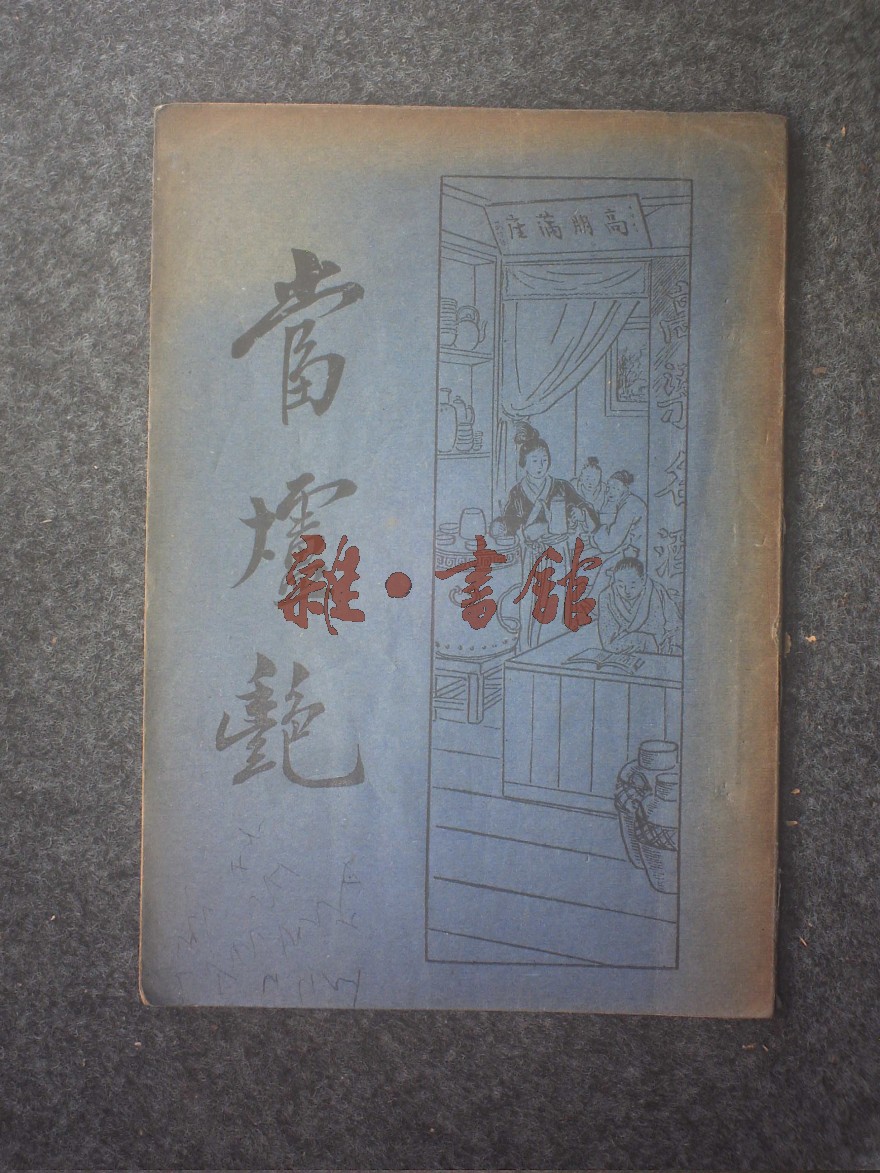 當爐艷
高朋滿座
名酒
雜·書館